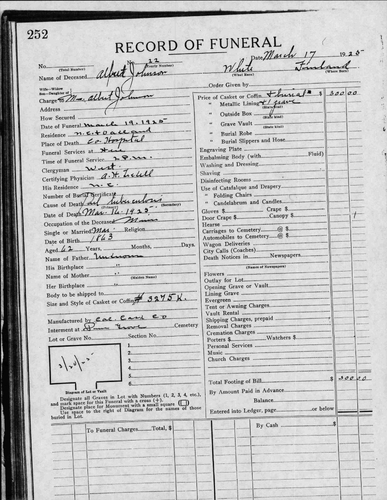 252
RECORD OF FUNERAL
No. 22 Date March 17 1925
(Total Number) (Yearly Number)
Name of Deceased Albert Johnson White Finland
(What Race) (Where Born)
Charge Mrs Albert Johnson
Order Given by
Address
How Secured
Date of Funeral March 19, 1925
Residence N.E.
Place of Death Co. Hospital
Funeral Services at
Time of Funeral Service P.M.
Clergyman West
Certifying Physician
His Residence N.E.
Number of Burial
Cause of Death tuberculosis
Date of Death Mar. 16, 1925
Occupation of the Deceased Miner
Single or Married Mar Religion
Date of Birth 1863
Aged 62 Years, Months, Days.
Name of Father Unknown
His Birthplace "
Name of Mother "
(Maiden Name)
Her Birthplace "
Body to be shipped to
Size and Style of Casket or Coffin # 3275 K.
Manufactured by Co
Interment at Pine Grove Cemetery
Lot or Grave No. Section No.
1
2
3
4
5
6
Diagram of Lot or Vault
Designate all Graves in Lot with Numbers (1, 2, 3, 4, etc.), and mark space for this Funeral with a cross (+).
Designate place for Monument with a small square
Use space to right of Diagram for the names of those buried in Lot.
Price of Casket or Coffin & burial $ 300.00
" Metallic Lining & grave
" Outside Box
" Grave Vault
" Burial Robe
" Burial Slippers and Hose
Engraving Plate
Embalming Body (with Fluid)
Washing and Dressing
Shaving
Disinfecting Rooms
Use of Catafalque and Drapery
" Folding Chairs
" Candelabrum and Candles
Gloves $ Crape $
Door Crape $ Canopy $
Hearse
Carriages to Cemetery @ $
Automobiles to Cemetery @ $
Wagon Deliveries
City Calls (Coaches)
Death Notices in Newspapers
(Names of Newspapers)
Flowers
Outlay for Lot
Opening Grave or Vault
Lining Grave
Evergreen
Tent or Awning Charges
Vault Rental
Shipping Charges, prepaid
Removal Charges
Cremation Charges
Porters $ Watchers $
Personal Services
Music
Church Charges
Total Footing of Bill $ 300.00
By Amount Paid in Advance
Balance
Entered into Ledger, page or below
To Funeral Charges Total, $
By Cash $